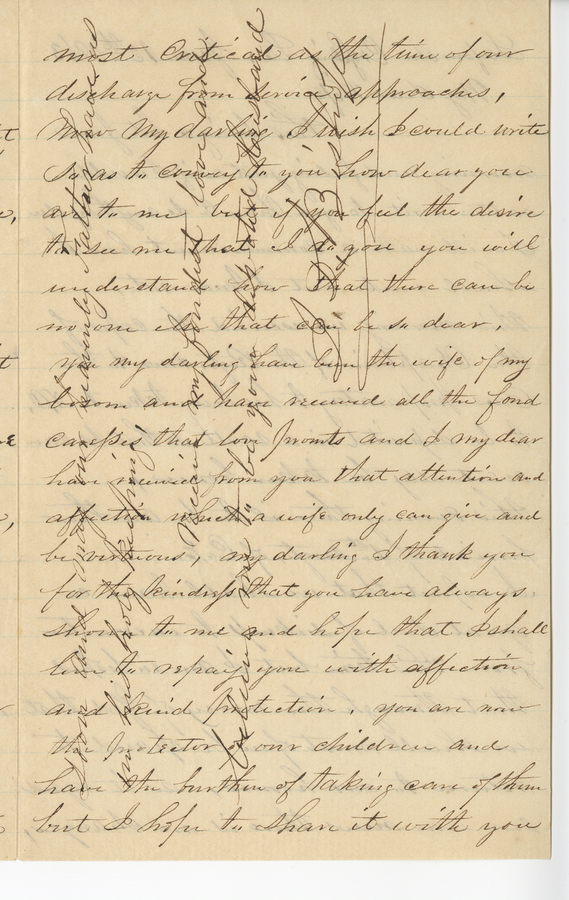 most critical as the time of our
discharge from service approaches,
Now my darling I wish I could write
So as to convey to you how dear you
are to me but if you feel the desire
to see me that I do you you will
understand how that there can be
no one else that can be so dear,
you my darling have been the wife of my
bosom and have received all the fond
caresses that love promts and I my dear
have received from you that attention and
affection which a wife only can give and
be virtuous, my darling I thank you
for the kindness that you have always
shown to me and hope that I shall
live to repay you with affection
and kind protection. you are now
the protector of our children and
have the burthen of taking care of them
but I hope to share it with you
love and may our heavenly Father have us
in his holy keeping
Receive my fondest love and
believe me to be your husband